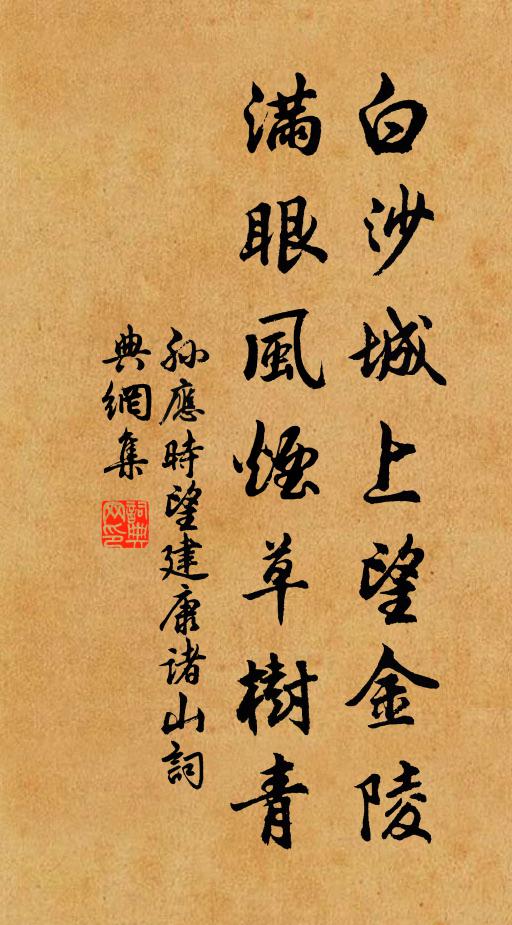 白沙城上望金陵
滿眼風煙草樹青
孫應時望建康诸山詞
典網集
詞典網印